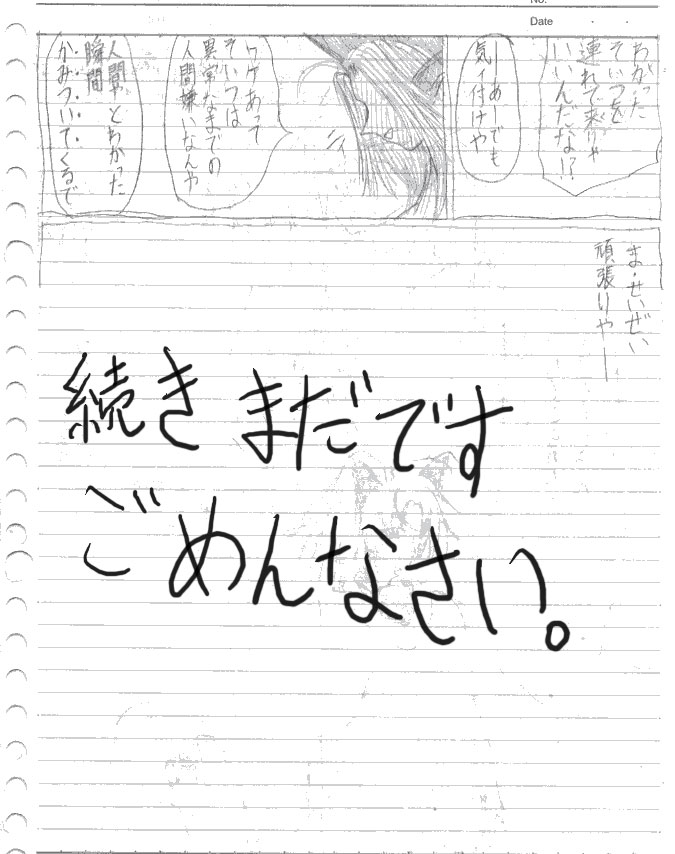 No.
Date
わかった
そいつを
連れて来りゃ
いいんだな!?
――あーでも
気ィ付けや
ワケあって
そいつは
異常なまでの
人間嫌いなんや
人間やとわかった
瞬間
かみついてくるで
ま・せいぜい
頑張りやー
続きまだです
ごめんなさい。